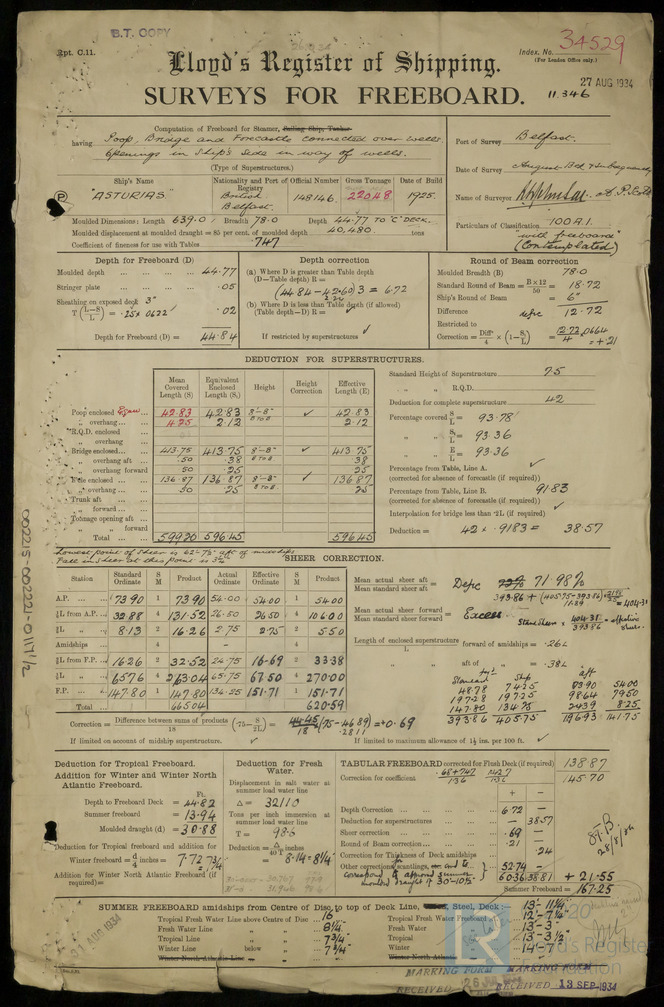 B.T. COPY
Rpt. C.11.
Index. No. 34529
(For London Office only.)
Lloyd's Register of Shipping.
27 AUG 1934
SURVEYS FOR FREEBOARD.
11.346
Computation of Freeboard for Steamer, Sailing Ship, Tanker
having Poop, Bridge and Forecastle connected over wells
Openings in Ship's Side in way of wells.
(Type of Superstructures.)
Port of Survey Belfast.
Date of Survey August 13th & Subsequently
Name of Surveyor
Particulars of Classification 100 A.1.
"with freeboard"
(Contemplated)
Ship's Name
Nationality and Port of Registry
Official Number
Gross Tonnage
Date of Build
"ASTURIAS"
British
Belfast.
148146
22048
1925
Moulded Dimensions: Length 639.0 Breadth 78.0 Depth 44.77 TO "C" DECK.
Moulded displacement at moulded draught = 85 per cent. of moulded depth 40,480 tons
Coefficient of fineness for use with Tables .747
Depth for Freeboard (D)
Moulded depth ... 44.77
Stringer plate ... .05
Sheathing on exposed deck 3"
T (L-S/L) = .25 x .0622 .02
Depth for Freeboard (D) = 44.84
Depth correction
(a) Where D is greater than Table depth
(D—Table depth) R =
(44.84 - 42.60) 3 = 6.72
(b) Where D is less than Table depth (if allowed)
(Table depth—D) R =
If restricted by superstructures
Round of Beam correction
Moulded Breadth (B) 78.0
Standard Round of Beam = B×12/50 = 18.72
Ship's Round of Beam = 6"
Difference defic 12.72
Restricted to
Correction = Diff/4 × (1 − S/L) = 12.72/4 .0664 = +.21
DEDUCTION FOR SUPERSTRUCTURES.
Mean Covered Length (S)
Equivalent Enclosed Length (S₁)
Height
Height Correction
Effective Length (E)
Poop enclosed 42.83 42.83 8'-8" ✓ 42.83
„ overhang 4.25 2.12 2.12
R.Q.D. enclosed
„ overhang
Bridge enclosed 413.75 413.75 8'-8" ✓ 413.75
„ overhang aft .50 .38 .38
„ overhang forward .50 .25 .25
F'cle enclosed 136.87 136.87 8'-8" ✓ 136.87
„ overhang .50 .25 .25
Trunk aft
„ forward
Tonnage opening aft
„ forward
Total 599.20 596.45 596.45
Standard Height of Superstructure 7.5
„ „ R.Q.D.
Deduction for complete superstructure 42
Percentage covered S/L = 93.78
„ „ S₁/L = 93.36
„ „ E/L = 93.36
Percentage from Table, Line A.
(corrected for absence of forecastle (if required))
Percentage from Table, Line B. 91.83
(corrected for absence of forecastle (if required))
Interpolation for bridge less than ·2L (if required)
Deduction = 42 x .9183 = 38.57
Lowest point of Sheer is 62'-7½" aft of midships
Fall in sheer at this point is 3¼"
SHEER CORRECTION.
Station
Standard Ordinate
S M
Product
Actual Ordinate
Effective Ordinate
S M
Product
A.P. 73.90 1 73.90 54.00 54.00 1 54.00
⅙L from A.P. 32.88 4 131.52 26.50 26.50 4 106.00
⅓L „ 8.13 2 16.26 2.75 2.75 2 5.50
Amidships 4 - 4
⅓L from F.P. 16.26 2 32.52 24.75 16.69 2 33.38
⅙L „ 65.76 4 263.04 65.75 67.50 4 270.00
F.P. 147.80 1 147.80 134.25 151.71 1 151.71
Total 665.04 620.59
Mean actual sheer aft
Mean standard sheer aft
= Defic 71.98%
Mean actual sheer forward
Mean standard sheer forward
= Excess
Length of enclosed superstructure forward of amidships = .26L
L
„ aft of „ = .38L
Standard Ship aft
48.78 74.25 73.90 54.00
197.28 197.25 98.64 79.50
147.80 134.25 24.39 8.25
393.86 405.75 196.93 141.75
Correction = Difference between sums of products/18 (·75− S/2L) = 44.45/18 (.75 - .4689) = +0.69
.2811
If limited on account of midship superstructure.
If limited to maximum allowance of 1½ ins. per 100 ft.
Deduction for Tropical Freeboard.
Addition for Winter and Winter North Atlantic Freeboard.
Ft.
Depth to Freeboard Deck = 44.82
Summer freeboard = 13.94
Moulded draught (d) = 30.88
Deduction for Tropical freeboard and addition for
Winter freeboard = d/4 inches = 7.72 7¾"
Addition for Winter North Atlantic Freeboard (if required) =
Deduction for Fresh Water.
Displacement in salt water at summer load water line
Δ = 32110
Tons per inch immersion at summer load water line
T = 98.6
Deduction = Δ/40T inches
= 8.14 - 8¼"
TABULAR FREEBOARD corrected for Flush Deck (if required) 138.87
Correction for coefficient .68+.747/1.36 1.427/1.36 145.70
+ −
Depth Correction 6.72 —
Deduction for superstructures — 38.57
Sheer correction .69 —
Round of Beam correction .21 —
Correction for Thickness of Deck amidships — .24
Other corrections, scantlings, etc. and to
correspond to approved summer
moulded draught of 30'-10½" 52.74 —
60.36 38.81 + 21.55
Summer Freeboard = 167.25
28/8/34
SUMMER FREEBOARD amidships from Centre of Disc to top of Deck Line, Steel, Deck: 13'-11¼"
Tropical Fresh Water Line above Centre of Disc 16"
Fresh Water Line „ „ 8¼"
Tropical Line „ „ 7¾"
Winter Line below „ 7¾"
Winter North Atlantic Line „
Tropical Fresh Water Freeboard 12'-7¼"
Fresh Water „ 13'-3"
Tropical „ 13'-3½"
Winter „ 14'-7"
Winter North Atlantic „
MARKING FORM
MARKING FORM
RECEIVED 13 SEP 1934
AUG 1934
002215-002221-0117 1/2
Lloyds Register
Foundation